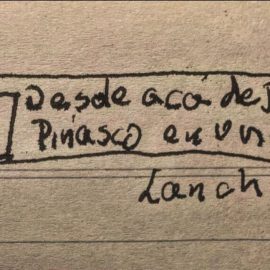 Desde acá de
Piñasco en un
Lanch